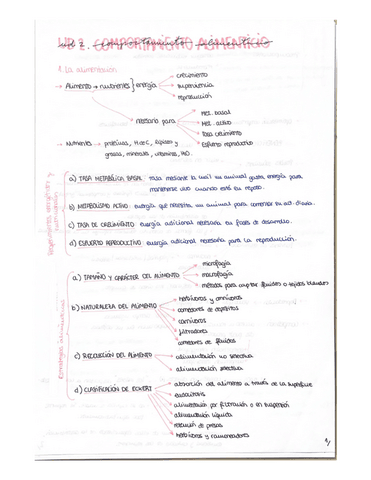 UD 2. COMPORTAMIENTO ALIMENTICIO
1. La alimentación
→ Alimento → nutrientes } energía
crecimiento
supervivencia
reproducción
necesario para
Met. basal
Met. activo
Tasa crecimiento
Esfuerzo reproductivo
→ Nutrientes → proteínas, H. de C., lípidos y
grasas, minerales, vitaminas, H2O.
Requerimientos energéticos y
a) TASA METABÓLICA BASAL. Tasa mediante la cual un animal gasta energía para
mantenerse vivo cuando está en reposo.
b) METABOLISMO ACTIVO energía que necesita un animal para comenzar su act. diaria.
c) TASA DE CRECIMIENTO energía adicional necesaria en fases de desarrollo.
d) ESFUERZO REPRODUCTIVO energía adicional necesaria para la reproducción.
Estrategias alimentativas
a) TAMAÑO Y CARÁCTER DEL ALIMENTO
microfagia
macrofagia
métodos para captar fluidos o tejidos blandos
b) NATURALEZA DEL ALIMENTO
herbívoros y omnívoros
comedores de depósitos
carnívoros
filtradores
comedores de fluidos
c) RECOLECCIÓN DEL ALIMENTO
alimentación no selectiva
alimentación selectiva
d) CLASIFICACIÓN DE
absorción del alimento a través de la superficie
alimentación por filtración o en suspensión
alimentación líquida
retención de presas
herbívoros y ramoneadores